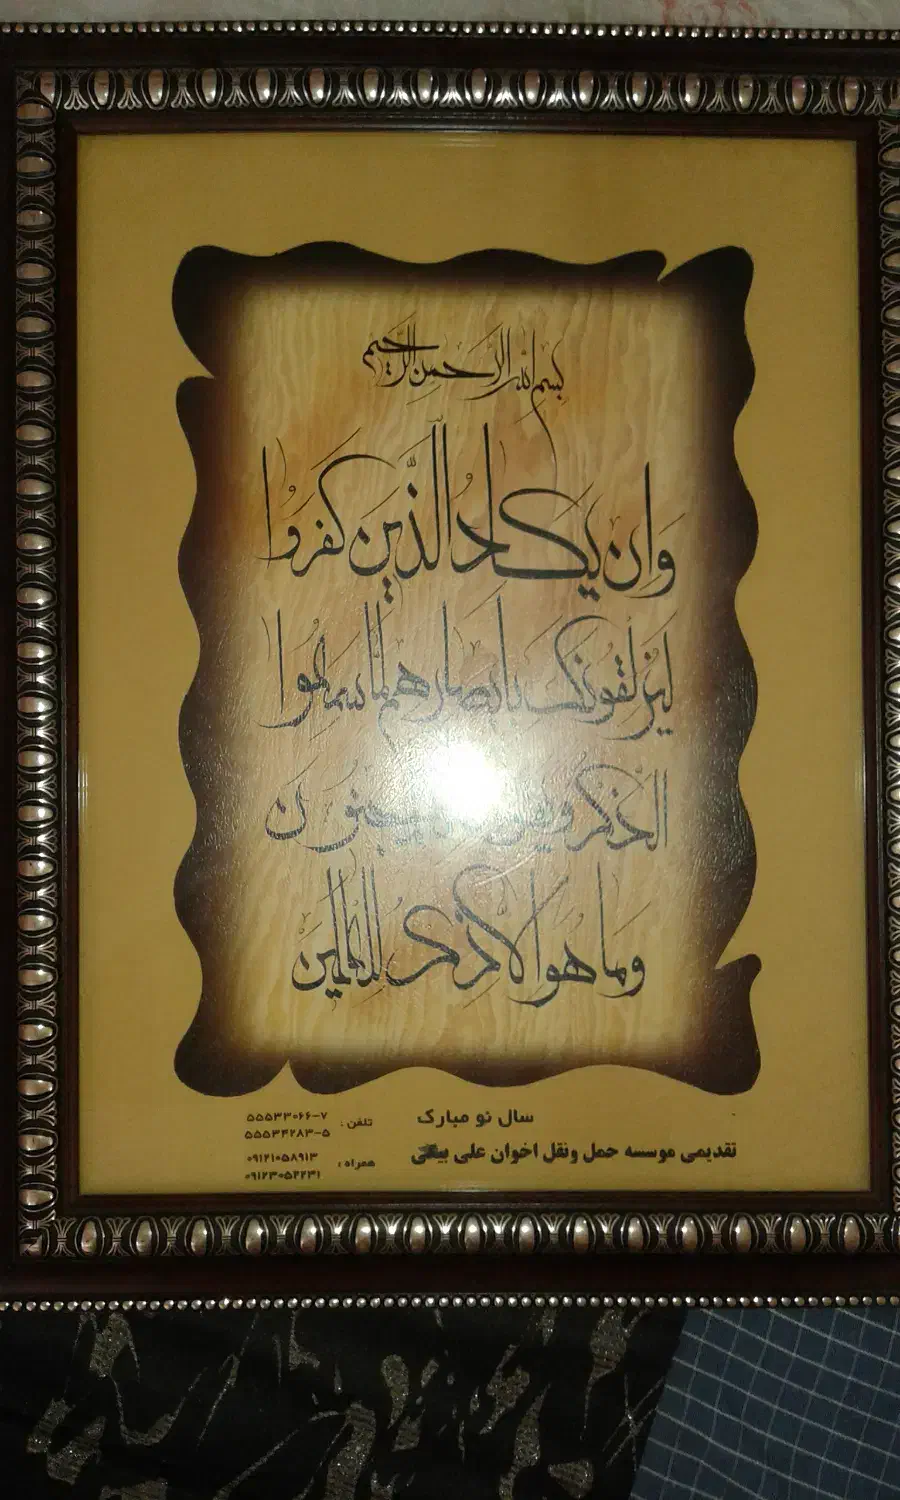 بسم الله الرحمن الرحیم
وَاِن یَکادُ الَّذینَ کَفَرُوا
لَیُزلِقُونَکَ بِاَبصارِهِم لَمّا سَمِعُوا
الذِّکرَ وَیَقُولُونَ لَمَجنُونٌ
وَما هُوَ اِلّا ذِکرٌ لِلعالَمینَ
سال نو مبارک
تقدیمی موسسه حمل ونقل اخوان علی
تلفن : ۵۵۵۳۳۰۶۶-۷
۵۵۵۳۴۲۸۳-۵
همراه : ۰۹۱۲۱۰۵۸۹۱۳
۰۹۱۲۳۰۵۲۲۳۱